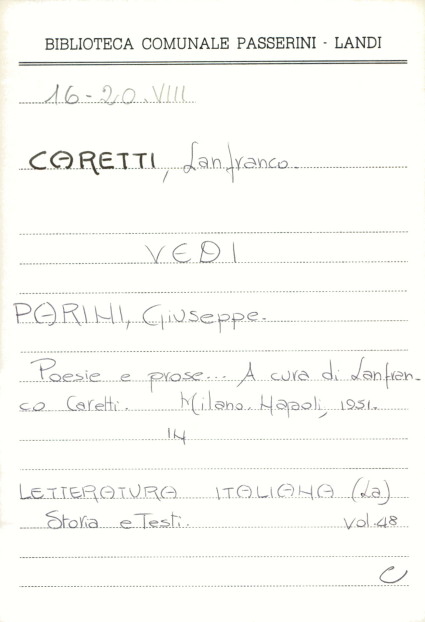 BIBLIOTECA COMUNALE PASSERINI - LANDI
16-20.VIII
CARETTI, Lanfranco.
VEDI
PARINI, Giuseppe.
Poesie e prose... A cura di Lanfran-
co Caretti. Milano. Napoli, 1951.
IN
LETTERATURA ITALIANA (La)
Storia e Testi. vol. 48
C